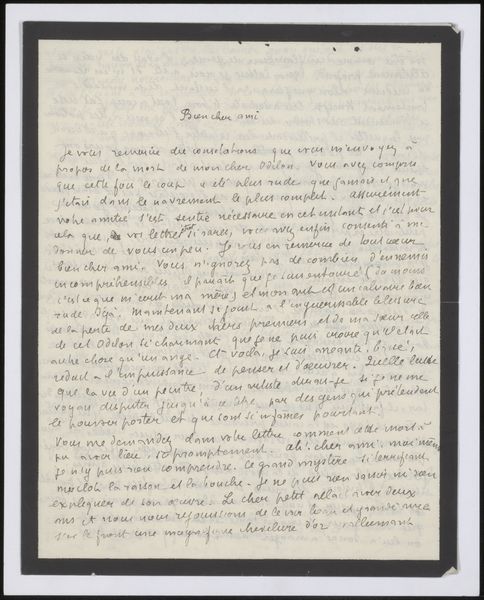 Bien cher ami
Je vous remercie des consolations que vous m'envoyez à
propos de la mort de mon cher Odilon. Vous avez compris
que cette fois le coup a été plus rude que jamais et que
j'étais dans le navrement le plus complet. assurément
votre amitié s'est sentie nécessaire en cet instant et c'est pour
cela que, vos lettres si rares, vous avez enfin consenti à me
donner de vous un peu. Je vous en remercie de tout cœur
bien cher ami. Vous n'ignorez pas de combien d'ennemis
incompréhensibles il parait que je suis entouré (du moins
c'est ce que m'écrit ma mère) et mon art est un calvaire bien
rude déjà. Maintenant se joint à l'inguérissable blessure
de la perte de mes deux frères premiers et de ma sœur celle
de cet Odilon si charmant que je ne puis croire qu'il était
autre chose qu'un ange. Et voilà, je suis anéanti, brisé,
réduit à l'impuissance de penser et d'œuvrer. Quelle lutte
que la vie d'un peintre d'un artiste si je ne me
voyais disputer jusqu'à ce titre par des gens qui prétendent
le pouvoir porter et que sont si infâmes pourtant
Vous me demandez dans votre lettre comment cette mort a
pu avoir lieu si promptement. ah! cher ami, moi même
je n'y puis rien comprendre. Ce grand mystère si terrifiant
me clot la raison et la bouche. Je ne puis rien savoir ni rien
expliquer de son œuvre. Le cher petit allait avoir deux
ans et nous nous rejouissions de le voir beau et grand avec
sur le front une magnifique chevelure d'or